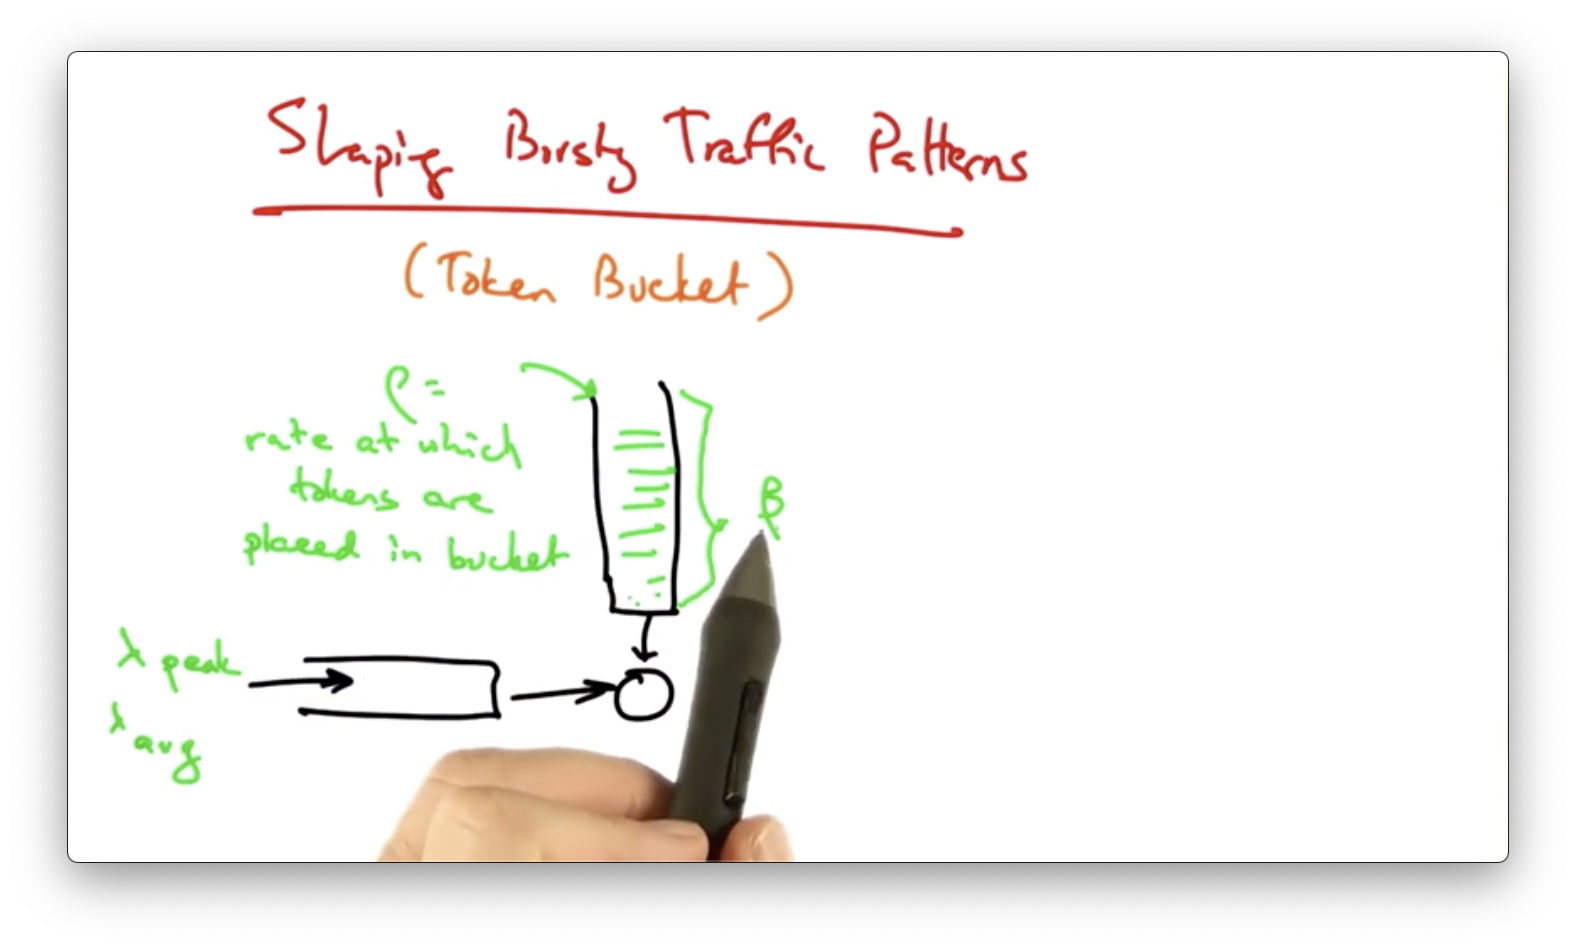 Shaping Bursty Traffic Patterns
(Token Bucket)
ρ =
rate at which
tokens are
placed in bucket
β
λ peak
λ avg